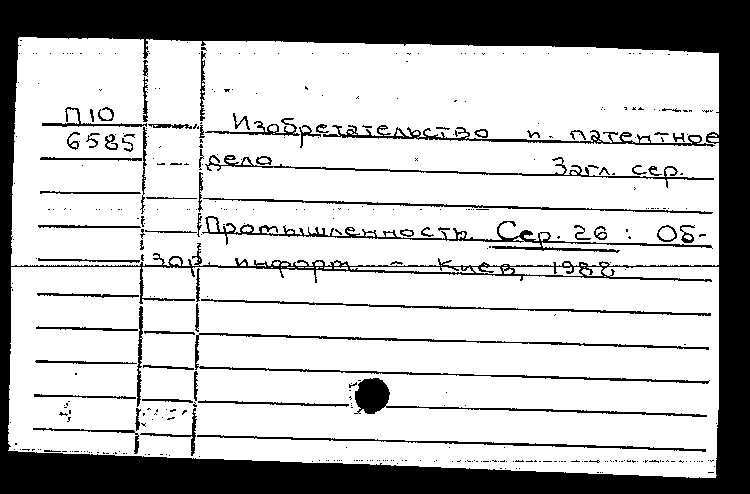 П10
6585
Изобретательство и патентное
дело. Загл. сер.
Промышленность. Сер. 26 : Об-
зор. информ. - Киев, 1988
4